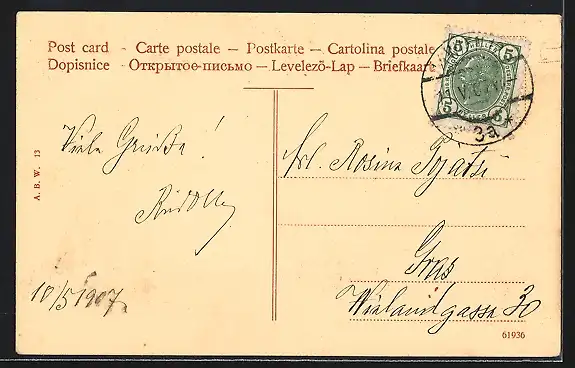 Post card – Carte postale – Postkarte – Cartolina postale
Dopisnice – Открытое письмо – Levelező-Lap – Briefkaart
5 5
5 5
3a *
A. B. W. 13
Viele Grüße!
Frl. Rosina
Graz
Wielandgasse 30
10/5 1907
61936